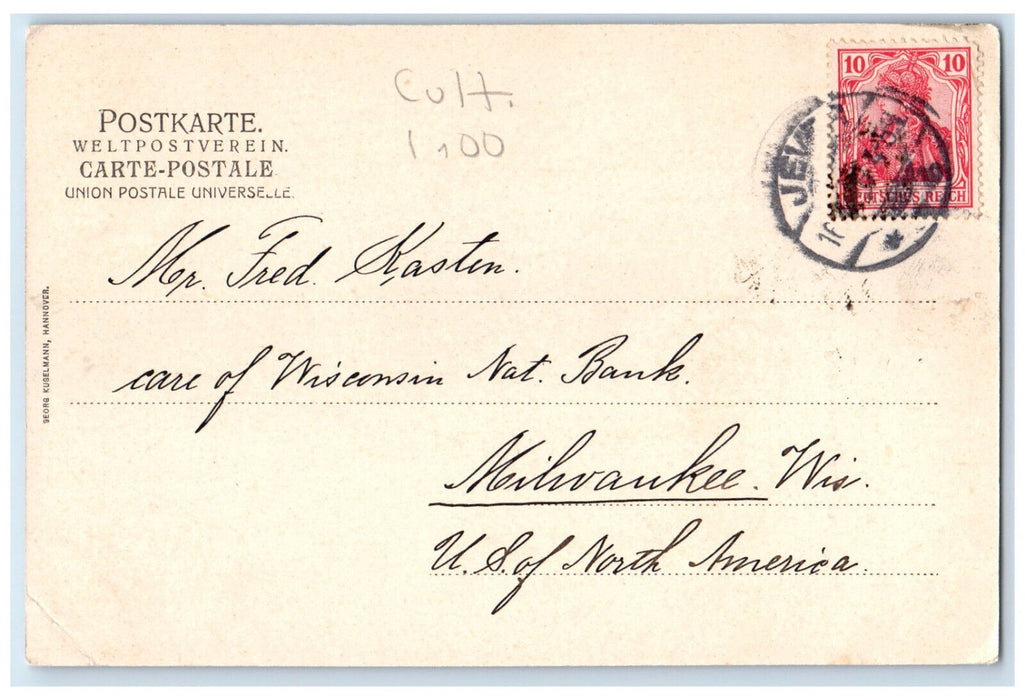 POSTKARTE.
WELTPOSTVEREIN.
CARTE-POSTALE
UNION POSTALE UNIVERSELLE.
Cult.
1.00
10 10
DEUTSCHES REICH
JEV
Mr. Fred. Kasten.
care of Wisconsin Nat. Bank.
Milwaukee. Wis.
U. S. of North America.
GEORG KUGELMANN, HANNOVER.